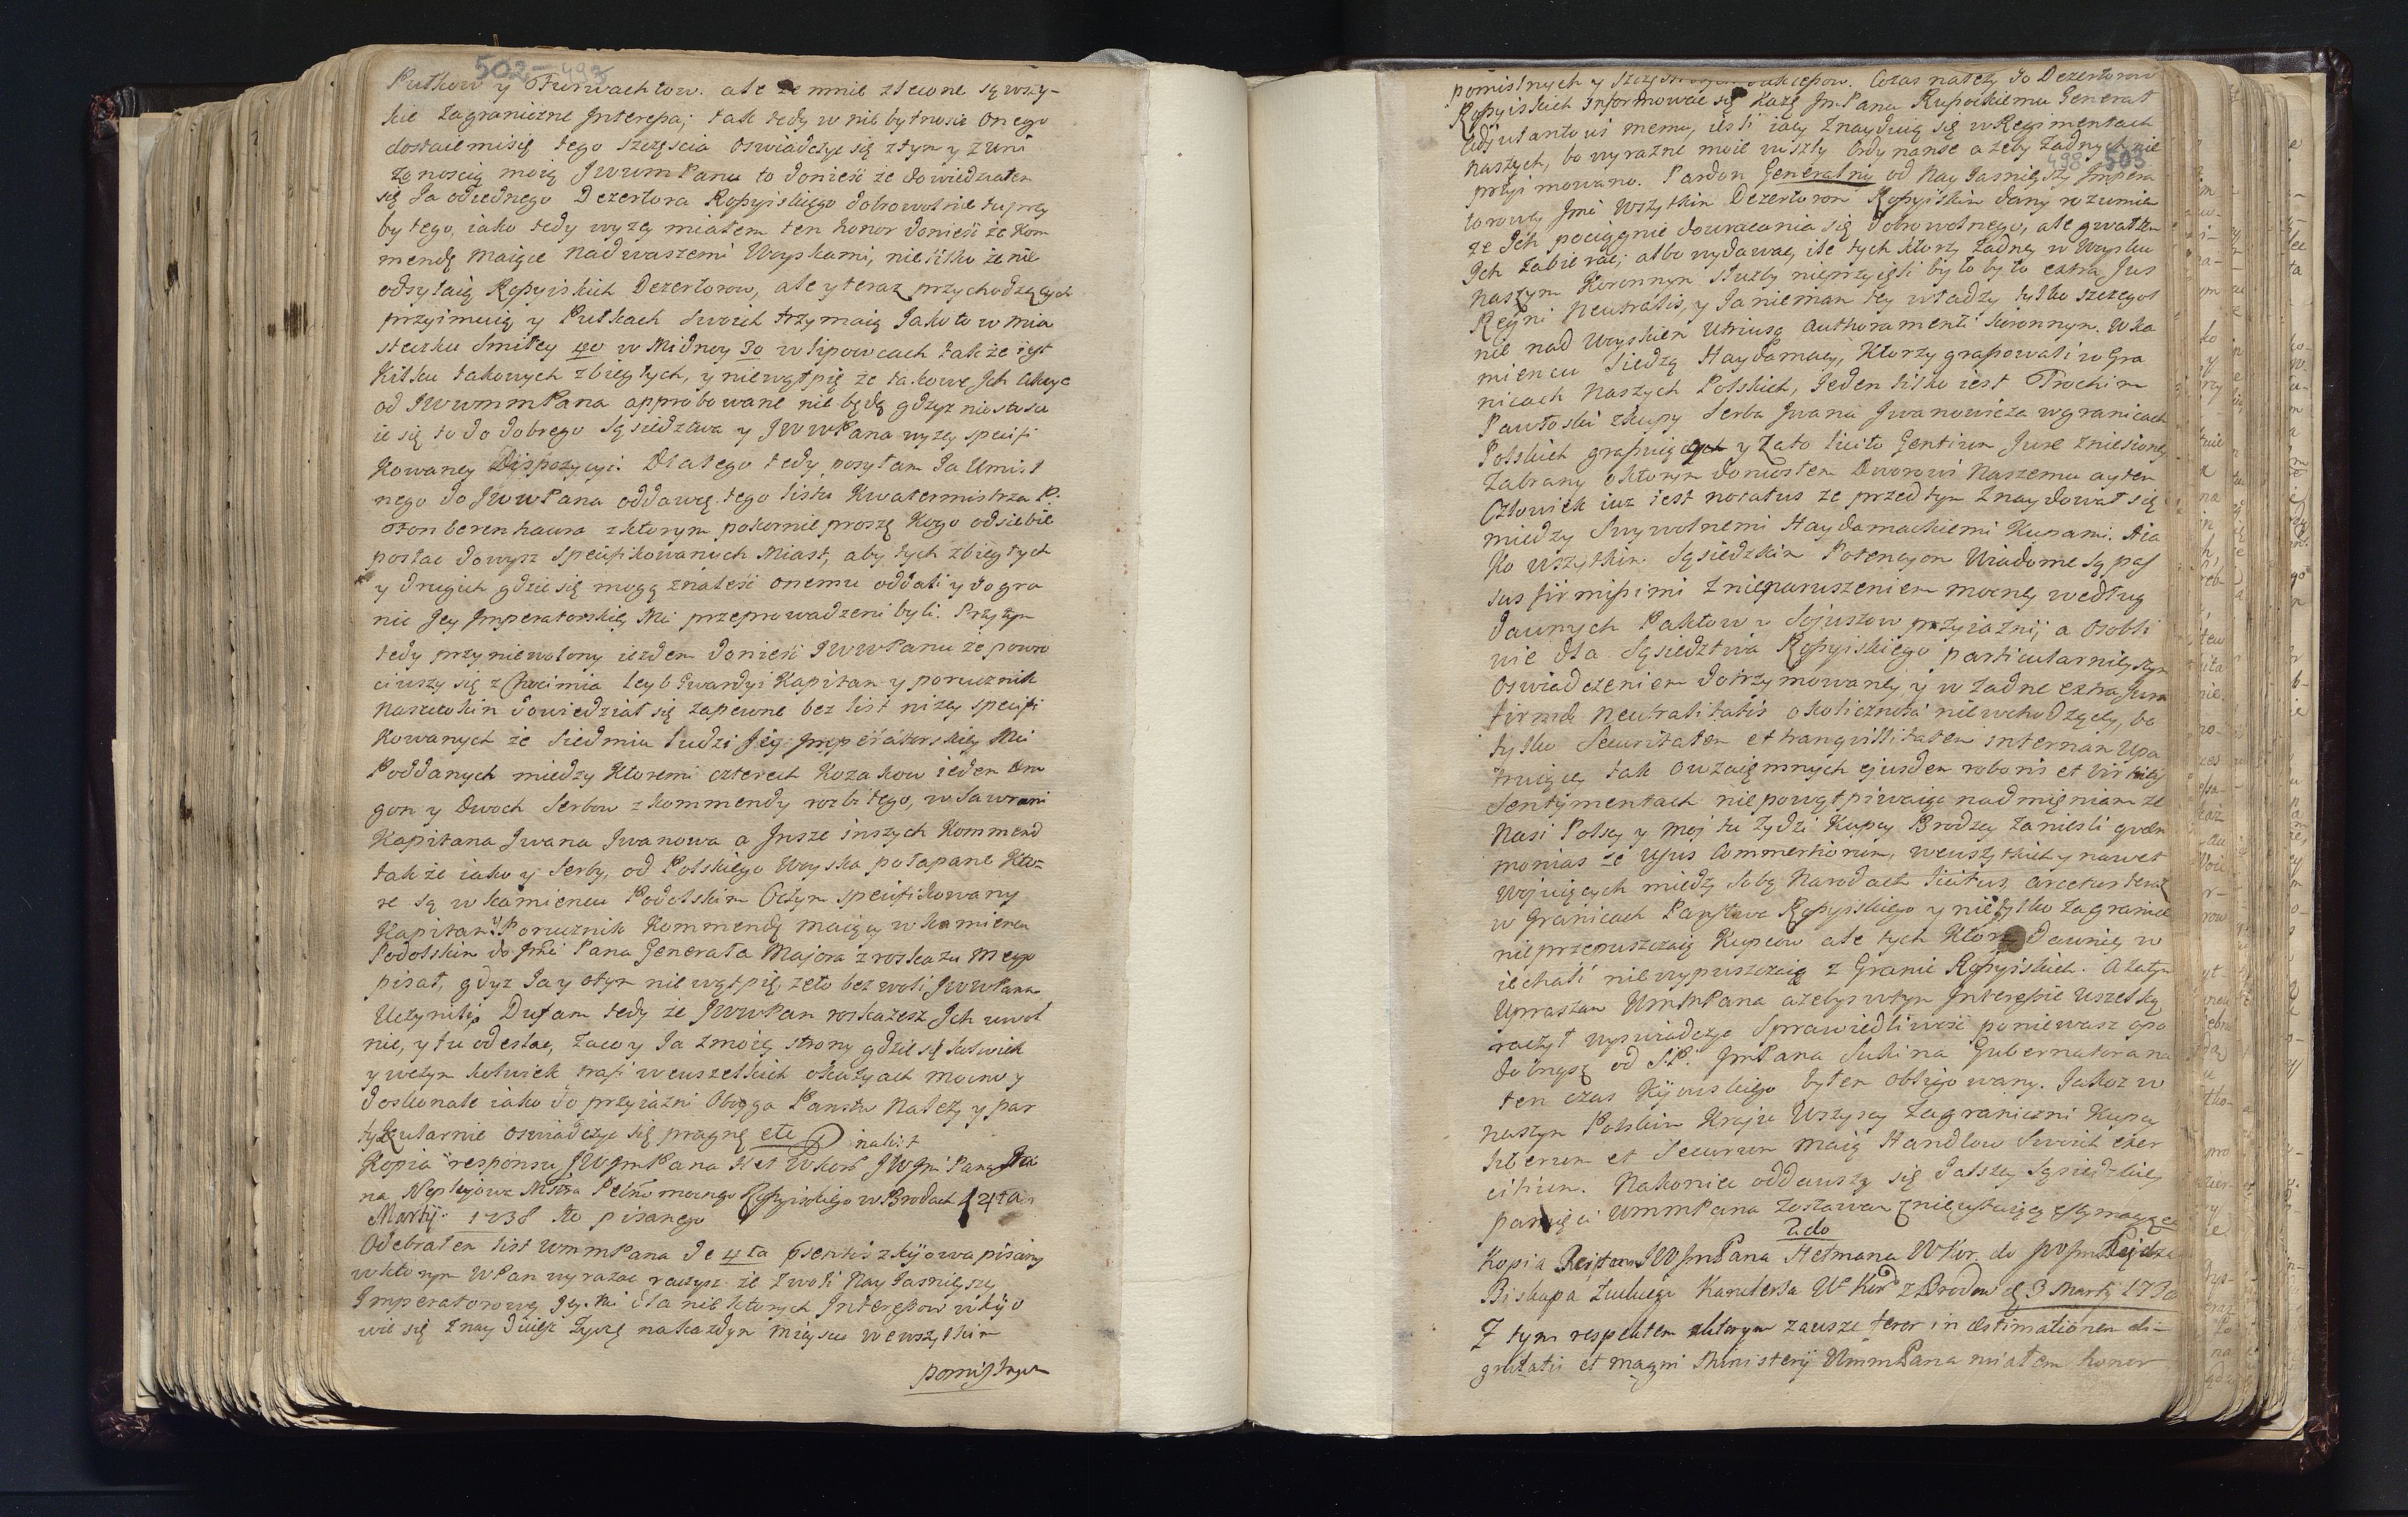 502 493
Pułkow y Furwachtow. ale że mnie zlecone są wszy-
kie zagraniczne Interessa; tak tedy w niebytnosci onego
dostało mi się tego szczęścia oswiadczyc się z tym y z uni
zonoscią moią JWWMPanu to donieść że dowiedziałem
się Ja od iednego Dezertora Rossyiskiego dobrowolnie tu przy
bytego, iako tedy wyzey miałem ten honor donieść że Kom
mendę maiące nad waszemi Woyskami, nie tilko że nie
odsyłaią Rossyiskich Dezertorow, ale y teraz przychodzących
przyimuią y Pułkach swoich trzymaią Jako to w mia
steczku Smiłey 40 w Midnoy 30 w Lipowcach także iest
kilku takowych zbiegłych, y niewątpię że takowe Ich akcye
od JWWMMPana approbowane nie będą gdyz nie stosu
ie się to do dobrego Sąsiedztwa y JWWPana wyzey specifi
kowaney Dispozycyi. Dlatego tedy posyłam Ja Umisl
nego do JWWPana oddawcę tego listu Kwatermistrza P.
Fonberenhaura z ktorym pokornie proszę kogo od siebie
posłac do wysz specifikowanych Miast, aby tych zbiegłych
y drugich gdzie się mogą znaleść onemu oddali y do gra
nic Jey Imperatorskiey Mci przeprowadzeni byli. Przy tym
tedy przyniewolony iezdem donieść JWWPanu że powro
ciwszy się z Chocimia Leyb Gwardyi Kapitan y porucznik
Naszczokin dowiedział się zapewne bez list nizey specifi
kowanych że siedmiu ludzi Jey Imperatorskiey Mci
Poddanych miedzy ktoremi czterech Kozakow ieden Dra
gon y Dwoch Serbow z kommendy rozbitego, w Sawrani
Kapitana Jwana Jwanowa a Insze inszych Kommend
także iako y Serby, od Polskiego Woyska połapane Kto-
re są w kamiencu Podolskim Oczym specifikowany
Kapitan y Porucznik Kommendę maiący w kamiencu
Podolskim do Jmci Pana Generała Majora z roskazu mego
pisał, gdyz Ja y otym nie wątpię, ze to bez woli JWWPana
Uczynili. Dufam tedy że JWWPan roskażesz Ich uwol
nic, y tu odesłac, zaco y Ja z moiey strony gdzie się kolwiek
y wczym kolwiek trafi we wszelkich okazyach mocno y
doskonale iako do przyiazni Oboyga Panstw należy y par
tykularnie oswiadczyc się pragnę etc
Kopia responsu JWJmPana Het WKor JWJmPana Jwa
na Neplujowa Mstra Pełnomocnego Rossyiskiego w Brodach 24ta
Martij 1738 do pisanego
Odebrałem list WmmPana de 4ta psentis z Kijowa pisany
w ktorym WPan wyrazac raczysz że z woli Nay Jasnieyszey
Imperatorowey Jey Mci dla niektorych Interessow w Kijo
wie się znayduiesz Zyczę na kazdym mieyscu we wszytkim
pomyslnych
498 503
Rossyiskich informowac się każę JmPana Rupockiemu Generał
Adjutantowi memu, iesli iacy znayduią się w Regimentach
naszych, bo wyrazne moie wyszły Ordynanse azeby żadnych nie
przyimowano. Pardon Generalny od Nay Jasnieyszey Impera
torowey Jmci wszytkim Dezertorom Rossyiskim dany rozumiem
że Ich pociągnie do wracania się dobrowolnego, ale gwałtem
Ich zabierac, albo wydawac, ile tych ktorzy żadney w Woysku
naszym Koronnym służby nieprzyięli było by to extra Jus
Regni Neutralis, y Ja niemam tey władzy tylko szczegol
nie nad Woyskiem Utriusq authoramenti koronnym. W ka
miencu siedzą Haydamacy, Ktorzy grassowali w Gra
nicach Naszych Polskich, Jeden tilko iest Trochim
Pawłoski z kupy Serba Jwana Jwanowicza w granicach
Polskich grassuiących y zato licito Gentium Jure zniesioney
zabrany o ktorym doniosłem Dworowi Naszemu a y ten
Człowiek iuz iest notatus że przedtym znaydował się
miedzy Swywolnemi Haydamackiemi Kupami. Jia
ko wszytkim Sąsiedzkim Potencyom Wiadome są pas
sus firmissimi z nieparuszeniem mocney według
dawnych Paktow y Sojuszow przyiazni, a osobli
wie dla Sąsiedztwa Rossyiskiego particularnieyszym
Oswiadczeniem dotrzymowaney y w żadne extra Jura
firmæ Neutralitatis okolicznosci niewchodzącey, bo
tylko Securitatem et tranquillitatem internam upa
truiący tak o wzaięmnych ejusdem roboris et virtutis
Sentymentach niepowątpiwaiąc nadmięniam że
Nasi Polscy y moj tu Zydzi Kupcy Brodzcy zaniesli quæri
monias że Usus Commertiorum, we wszytkich y nawet
Woiuiących miedzy sobą Narodach licitus, arcetur teraz
w Granicach Panstwa Rossyiskiego y nie tylko zagranice
nieprzepuszczaią Kupcow ale tych Ktorz dawniey w
iechali nie wypuszczaią z Granic Rossyiskich. A zatym
Upraszam WmMPana azebys w tym Interessie wszelką
raczył wyswiadczyc Sprawiedliwość poniewasz opo
dobnąsz od SP. JmPana Sukina Gubernatora na
ten czas Kijowskiego byłem obligowany. Jakoz w
naszym Polskim Kraju wszyscy zagraniczni Kupcy
liberum et Securum maią Handlow Swoich exer
citium. Nakoniec oddawszy się dalszey Sąsiedzkiey
pamięci WmmPana zostawam z nieustaiącą estymacyą
Kopia JWJmPana Hetmana WKor. do JWJmc Xiędza
Biskupa Łuckiego Kanclerza W Kor z Brodow d 3 Martij 1738
Z tym respektem z ktorym zawsze feror in æstimationem di-
gnitatis et magni Ministerij WmmPana miałem honor